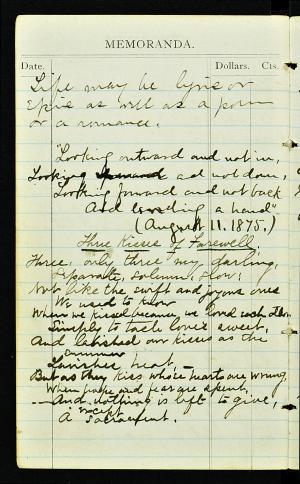 MEMORANDA.
Date. Dollars. Cts.
Life may be lyric or
Epic as well as a poem
or a romance.
"Looking outward and not in,
Looking and not down,
Looking forward and not back
And lending a hand"
(August 11. 1875.)
Three Kisses of Farewell.
Three, only three my darling,
Separate, solemn, slow;
Not like the swift and joyous ones
We used to know
When we kissed because we loved each other
Simply to taste love's sweet,
And lavished our kisses as the
summer
Lavishes heat,—
But as they kiss whose hearts are wrung,
When hope and fear are spent,
And nothing is left to give,
except
A Sacrament.